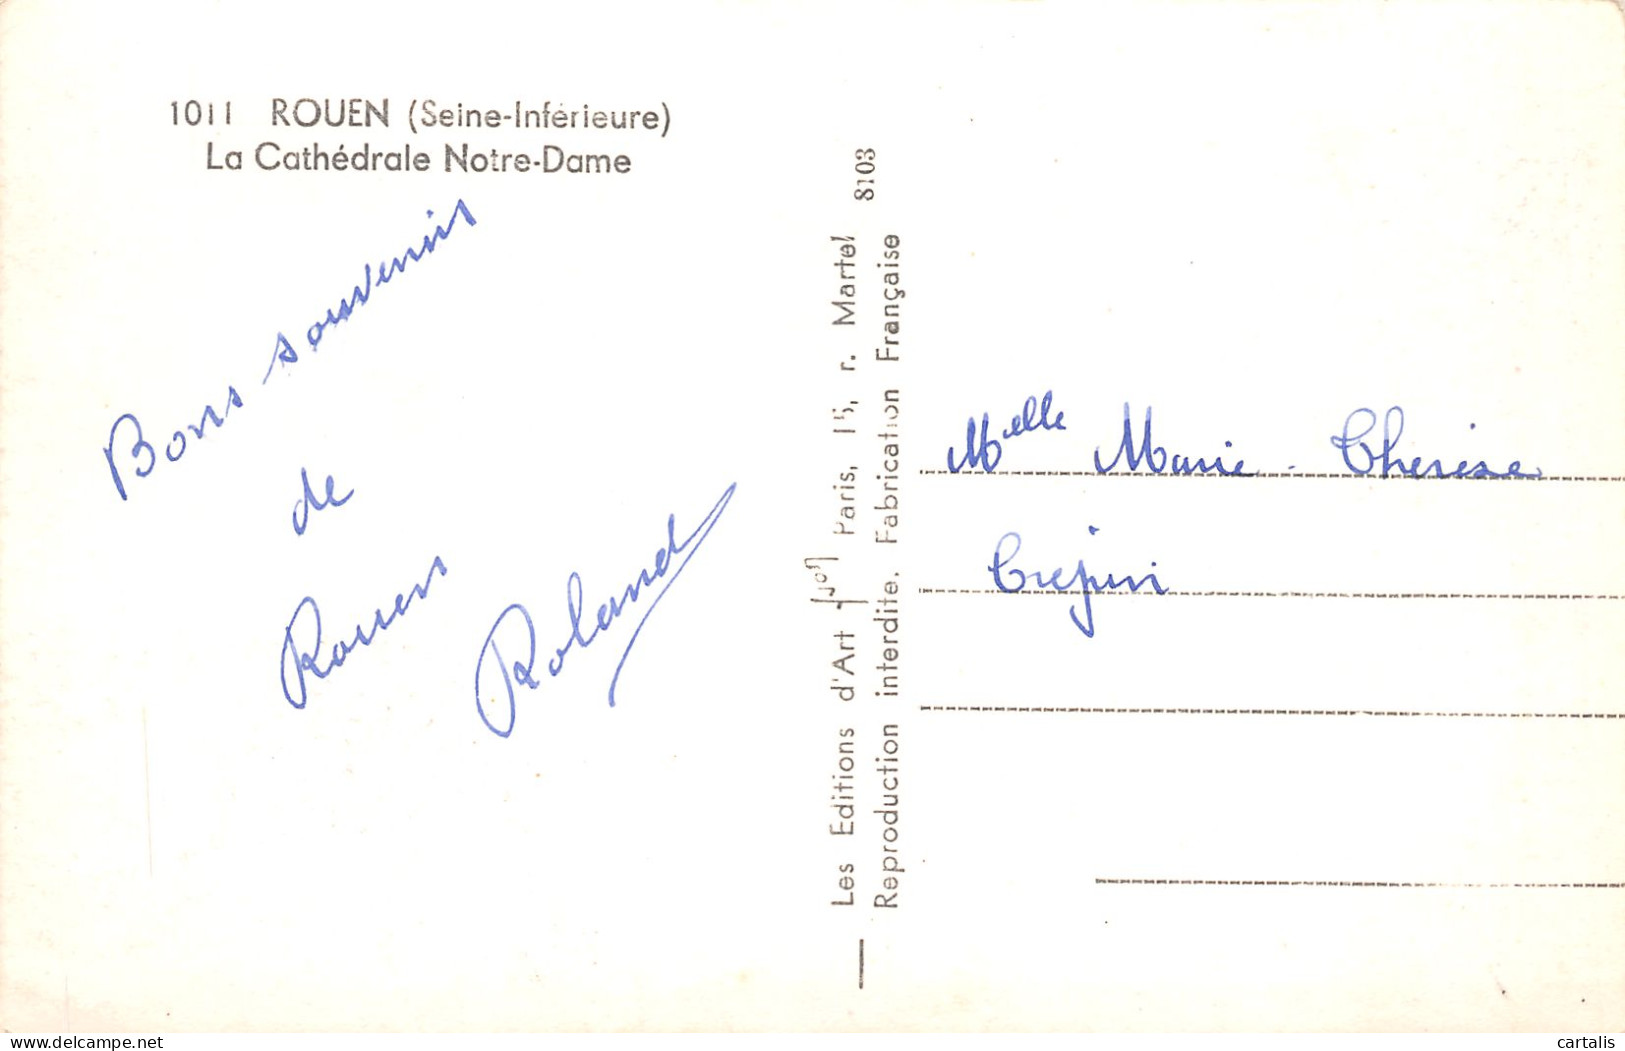 1011 ROUEN (Seine-Inférieure)
La Cathédrale Notre-Dame
Bons souvenirs
de
Rouen
Roland
8103
Les Editions d'Art Paris, 15, r. Martel
Reproduction interdite. Fabrication Française
Melle Marie-Therese
Crepin
delcampe.net
cartalis